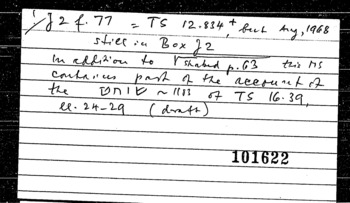 J2 f. 77 = TS 12.834, but Aug, 1968
still in Box J2
in addition to Shaked p. 63 this MS
contains part of the account of
the ~ 1183 of TS 16.39,
ll. 24-29 (draft)
101622